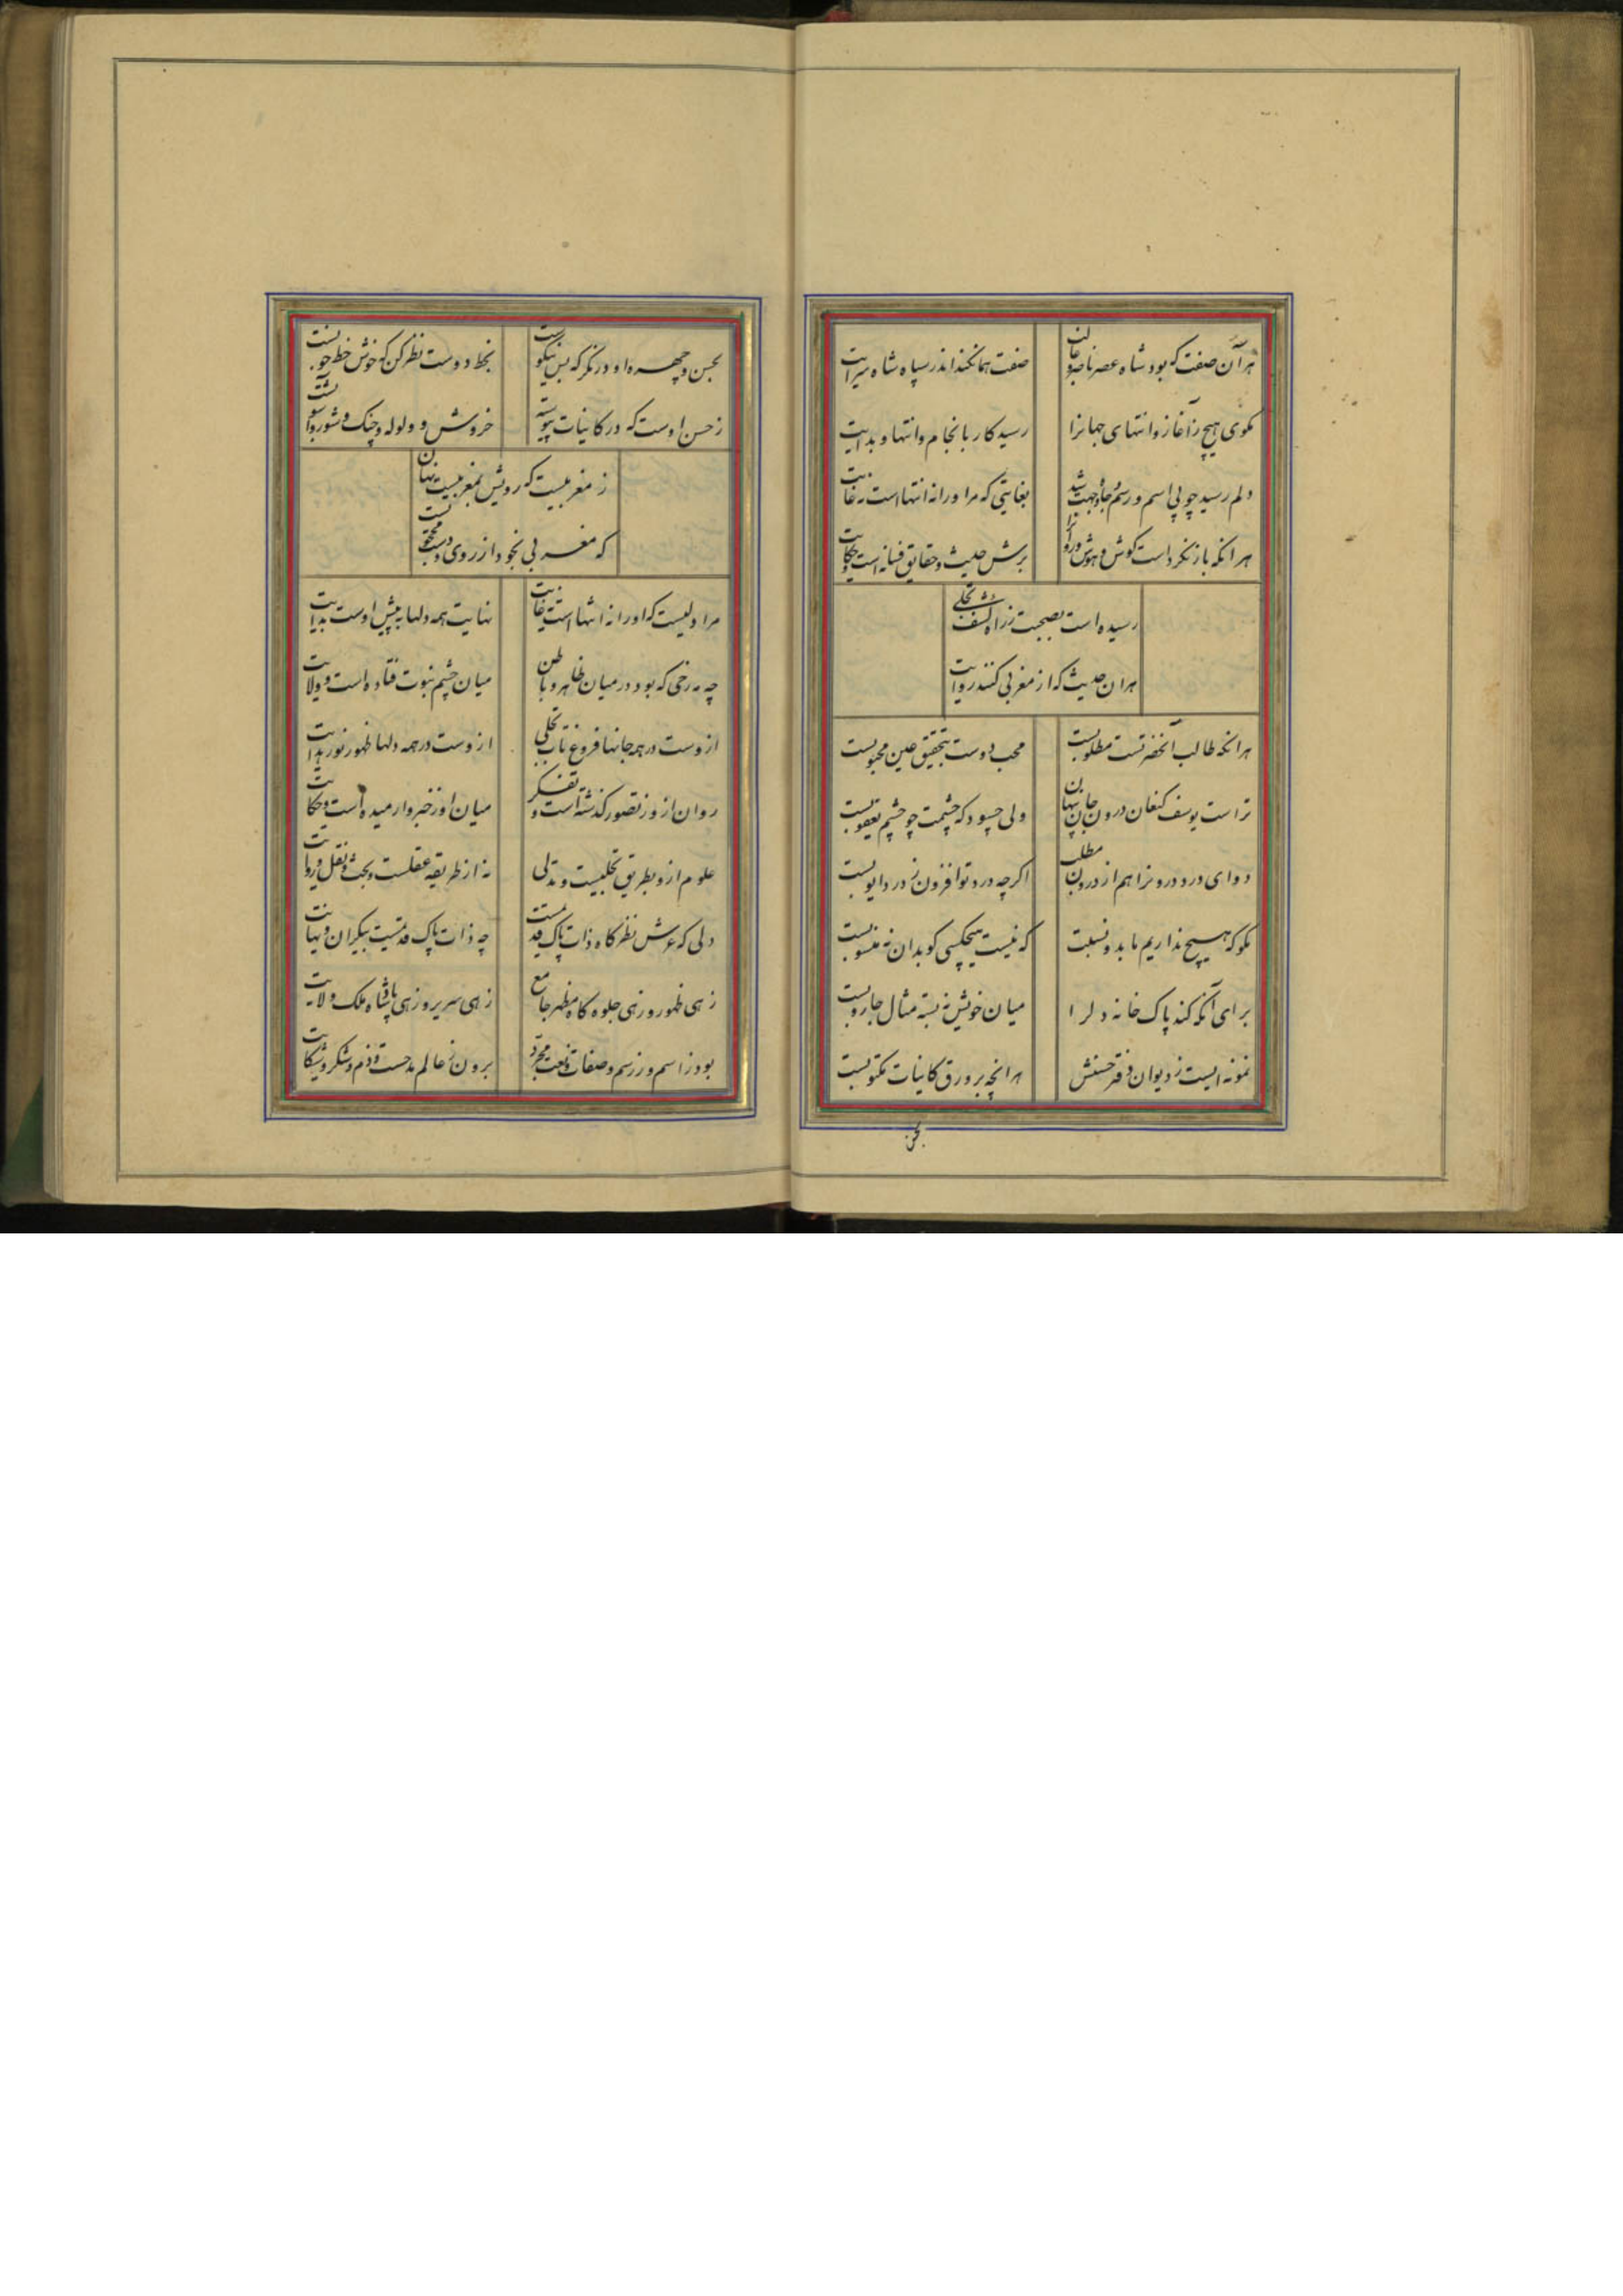 هرآن صفت که بود شاه عصر را غالب
صفت همان کند اندر سپاه شاه سرایت
مکوی هیچ ز آغاز و انتهای جهانرا
رسید کار بانجام و انتها و بدایت
دلم رسید چو بی اسم و رسم و جا و جهت شد
بغایتی که مر او را نه انتهاست نه غایت
هرانکه باز نکرداست کوش و هوش و روانرا
برش حدیث و حقایق فسانه است و حکایت
رسیده است بصحبت ز راه کشف و تجلی
هران حدیث که از مغربی کنند روایت
هرانکه طالب آنحضرتست مطلوبست
محب دوست بتحقیق عین محبوبست
تراست یوسف کنعان درون جان پنهان
ولی چسود که چشمت چو چشم یعقوبست
دوای درد درونرا هم از درون بطلب
اکرچه درد تو افزون ز درد ایوبست
مکو که هیچ نداریم ما بدو نسبت
که نیست هیچکسی کو بدان نه منسوبست
برای آنکه کند پاک خانه دلرا
میان خویش نه بسته مثال جاروبست
نمونه ایست ز دیوان دفتر حسنش
هرانچه برورق کاینات مکتوبست
بحسن
بحسن و چهره او درنکر که بس نیکوست
بخط دوست نظر کن که خوش خط خوبست
ز حسن اوست که در کاینات پیوسته
خروش و ولوله و جنک و شور و آشوبست
ز مغربیست که رویش بمغربیست نهان
که مغربی بخود از روی دوست محجوبست
مرا دلیست که او را نه انتهاست نه غایت
نهایت همه دلها به پیش اوست بدایت
چه برزخی که بود در میان ظاهر و باطن
میان ختم نبوت فتاده است و ولایت
ازوست در همه جانها فروغ تاب تجلی
ازوست در همه دلها ظهور نور هدایت
روان ازو ز تصور کذشته است و تفکر
میان او ز خبر وارمیده است و حکایت
علوم ازو بطریق تجلیست و تدلی
نه از طریقه عقلست و بحث و نقل و روایت
دلی که عرش نظرکاه ذات پاک قدیمست
چه ذات پاک قدیمست بیکران و نهایت
زهی ظهور و زهی جلوه کاه مظهر جامع
زهی سریر و زهی پادشاه ملک ولایت
بود ز اسم و ز رسم و صفات و نعت مجرد
برون ز عالم مدحست و ذم و شکر و شکایت